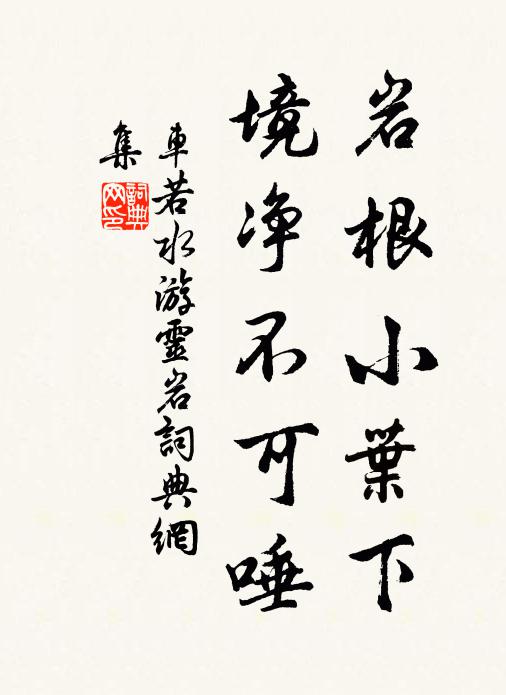 岩根小葉下
境净不可唾
車若水游靈岩詞典網
集
詞典网印